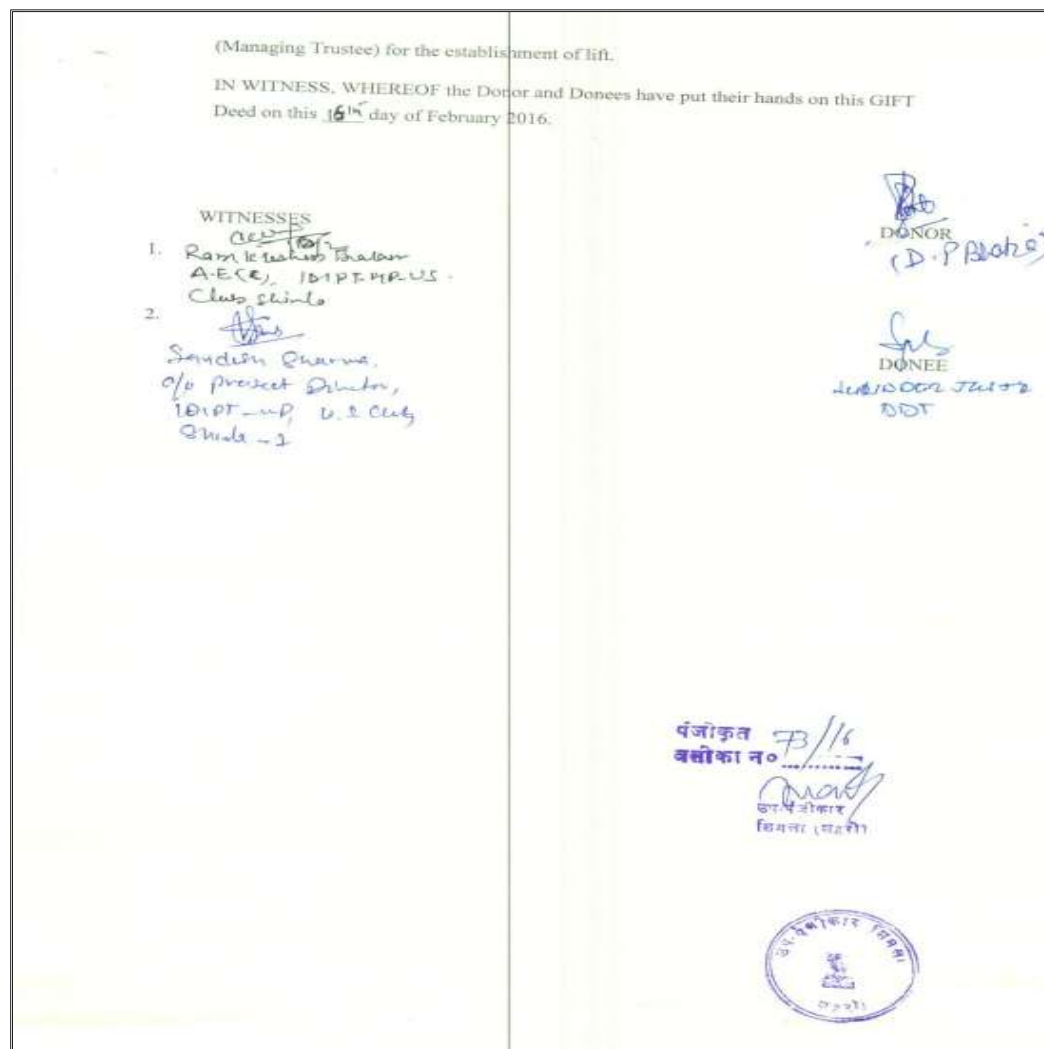 (Managing Trustee) for the establishment of lift.
IN WITNESS, WHEREOF the Donor and Donees have put their hands on this GIFT
Deed on this 16th day of February 2016.
WITNESSES
1.
A.E(R),
Club Shimla
2.
Sharma,
o/o Project Director,
IDIPT-HP, U.S Club
Shimla-1
DONOR
(D.P
DONEE
DDT
पंजीकृत
वसीका न० 73/16
उप-पंजीकार
शिमला (शहरी)
उप-पंजीकार शिमला
शहरी